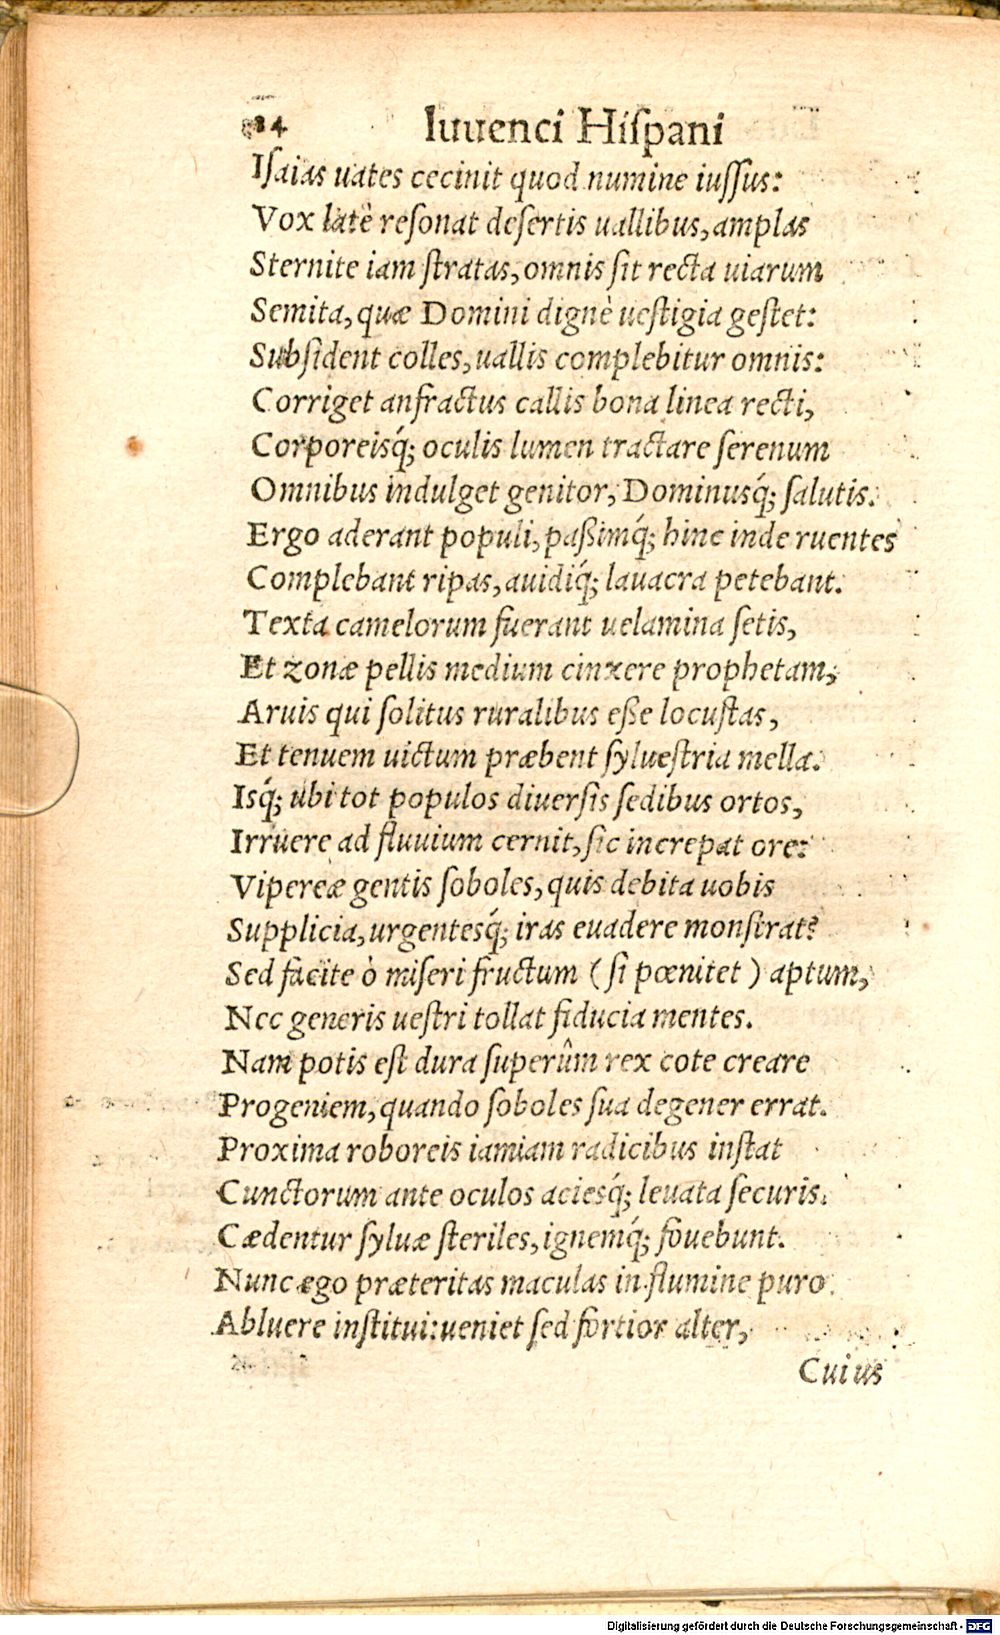 84 Iuuenci Hiſpani
Iſaias uates cecinit quod numine iuſſus:
Vox latè reſonat deſertis uallibus, amplas
Sternite iam ſtratas, omnis ſit recta uiarum
Semita, quæ Domini dignè ueſtigia geſtet:
Subſident colles, uallis complebitur omnis:
Corriget anfractus callis bona linea recti,
Corporeisq́; oculis lumen tractare ſerenum
Omnibus indulget genitor, Dominusq́; ſalutis.
Ergo aderant populi, paßimq́; hinc inde ruentes
Complebant ripas, auidiq́; lauacra petebant.
Texta camelorum fuerant uelamina ſetis,
Et zonæ pellis medium cinxere prophetam,
Aruis qui ſolitus ruralibus eße locuſtas,
Et tenuem uictum præbent ſylueſtria mella.
Isq́; ubi tot populos diuerſis ſedibus ortos,
Irruere ad fluuium cernit, ſic increpat ore:
Vipereæ gentis ſoboles, quis debita uobis
Supplicia, urgentesq́; iras euadere monſtrat?
Sed facite ò miſeri fructum ( ſi pœnitet ) aptum,
Nec generis ueſtri tollat fiducia mentes.
Nam potis eſt dura ſuperûm rex cote creare
Progeniem, quando ſoboles ſua degener errat.
Proxima roboreis iamiam radicibus inſtat
Cunctorum ante oculos aciesq́; leuata ſecuris.
Cædentur ſyluæ ſteriles, ignemq́; fouebunt.
Nunc ego præteritas maculas in flumine puro
Abluere inſtitui: ueniet ſed fortior alter,
Cuius
Digitalisierung gefördert durch die Deutsche Forschungsgemeinschaft - DFG